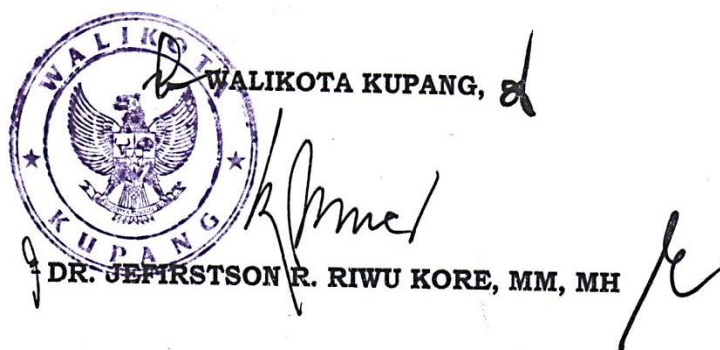 WALIKOTA
KUPANG
WALIKOTA KUPANG,
DR. JEFIRSTSON R. RIWU KORE, MM, MH